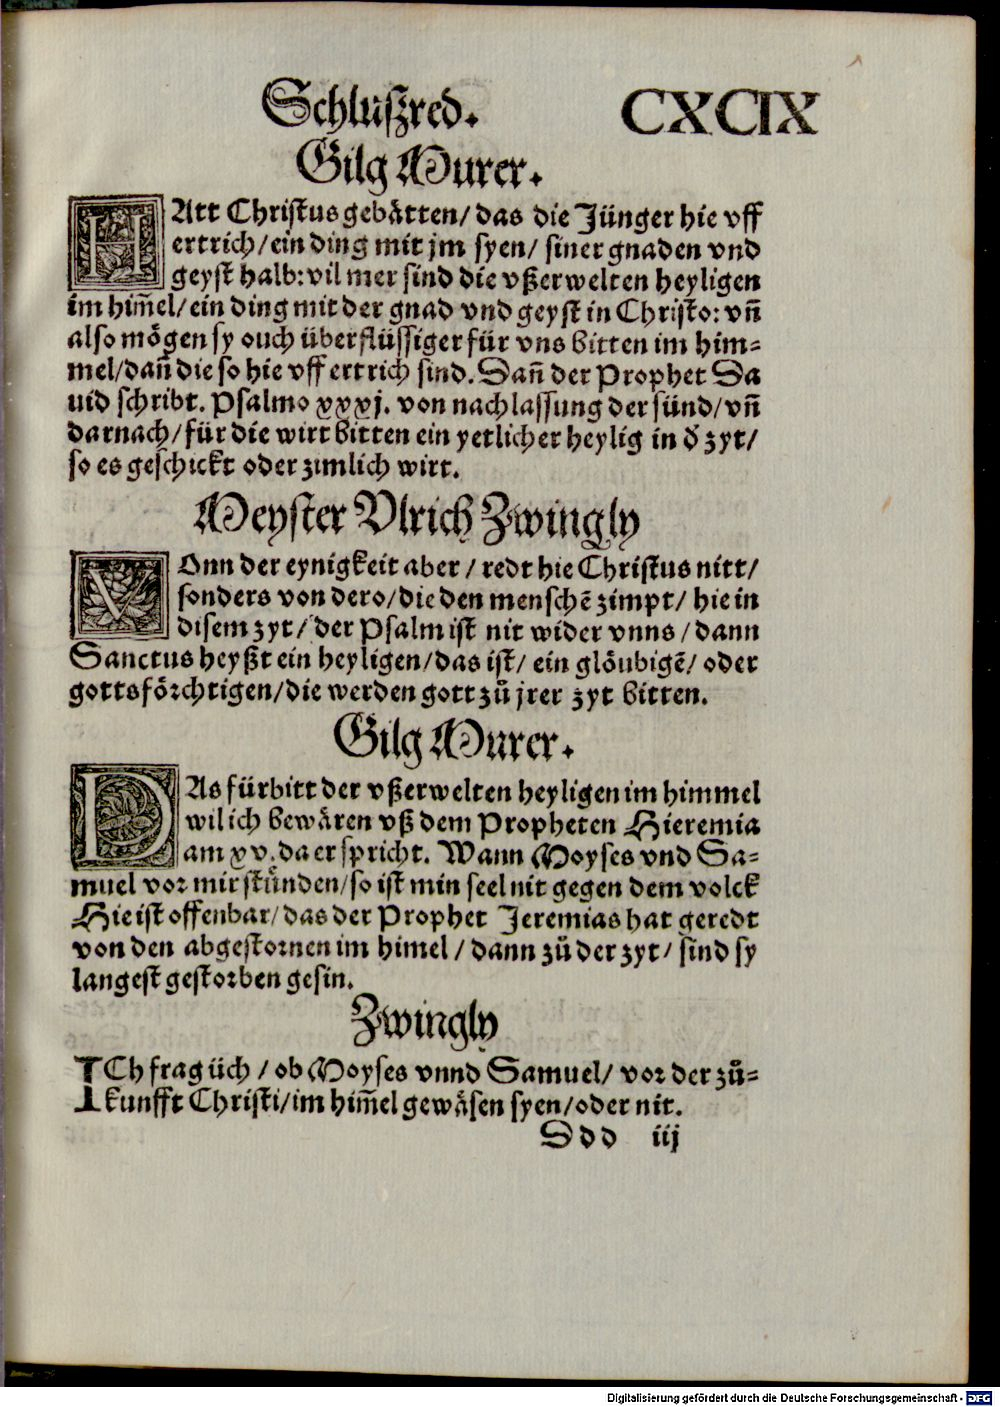 Schluſzred. CXCIX
Gilg Murer.
HAtt Chriſtus gebätten/ das die Jünger hie vff
ertrich/ ein ding mit jm syen/ ſiner gnaden vnd
geyſt halb: vil mer ſind die vßerwelten heyligen
im him̄el/ ein ding mit der gnad vnd geyſt in Chriſto: vn̄
also mögen ſy ouch überflüſſiger für vns bitten im him⸗
mel/ dan̄ die ſo hie vff ertrich ſind. Dan̄ der Prophet Da
uid ſchribt. Pſalmo xxxj. von nachlaſſung der ſünd/ vn̄
darnach/ für die wirt bitten ein yetlicher heylig in d̓ zyt/
ſo es geſchickt oder zimlich wirt.
Meyſter Vlrich Zwingly
VOnn der eynigkeit aber/ redt hie Chriſtus nitt/
ſonders von dero/ die den menſchē zimpt/ hie in
diſem zyt/ der Pſalm iſt nit wider vnns/ dann
Sanctus heyßt ein heyligen/ das iſt/ ein glöubigē/ oder
gottsförchtigen/ die werden gott zů jrer zyt bitten.
Gilg Murer.
DAs fürbitt der vßerwelten heyligen im himmel
wil ich bewären vß dem Propheten Hieremia
am xv. da er ſpricht. Wann Moyſes vnd Sa⸗
muel vor mir ſtünden/ ſo iſt min ſeel nit gegen dem volck
Hie iſt offenbar/ das der Prophet Jeremias hat geredt
von den abgeſtornen im himel/ dann zů der zyt/ ſind ſy
langeſt geſtorben geſin.
Zwingly
ICh frag üch/ ob Moyſes vnnd Samuel/ vor der zů⸗
kunfft Chriſti/ im him̄el gewäſen syen/ oder nit.
Ddd iij
Digitalisierung gefördert durch die Deutsche Forschungsgemeinschaft - DFG